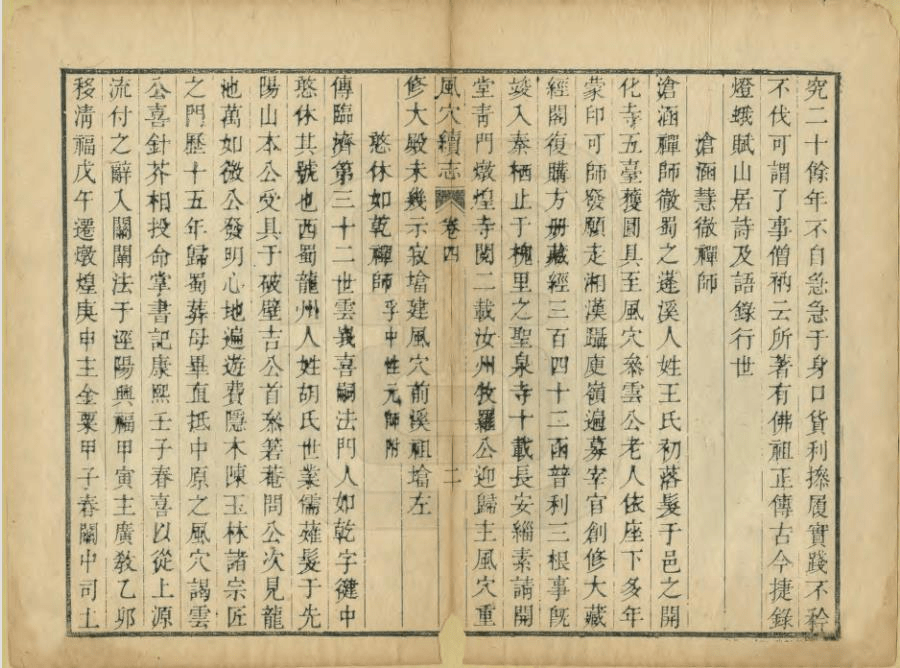 究二十餘年不自急急于身口貨利操履實踐不矜
不伐可謂了事僧衲云所著有佛祖正傳古今捷錄
燈蛾賦山居詩及語錄行世
滄涵慧徹禪師
滄涵禪師徹蜀之蓬溪人姓王氏初落髮于邑之開
化寺五臺獲圓具至風穴叅雲公老人依座下多年
蒙印可師發願走湘漢躡庾嶺遍募宰官創修大藏
經閣復購方册藏經三百四十三函普利三根事旣
竣入秦栖止于槐里之聖泉寺十載長安緇素請開
堂青門燉煌寺閱二載汝州牧羅公迎歸主風穴重
風穴續志 卷四 二
修大殿未幾示寂墖建風穴前溪祖墖左
憨休如乾禪師 孚中性元師附
傳臨濟第三十二世雲峩喜嗣法門人如乾字徤中
憨休其號也西蜀龍州人姓胡氏世業儒薙髮于先
陽山本公受具于破壁吉公首叅箬菴問公次見龍
池萬如微公發明心地遍遊費隱木陳玉林諸宗匠
之門歷十五年歸蜀葬母畢直抵中原之風穴謁雲
公喜針芥相投命掌書記康熙壬子春喜以從上源
流付之辭入關闡法于逕陽興福甲寅主廣教乙卯
移淸福戊午遷燉煌庚申主金粟甲子春關中司土